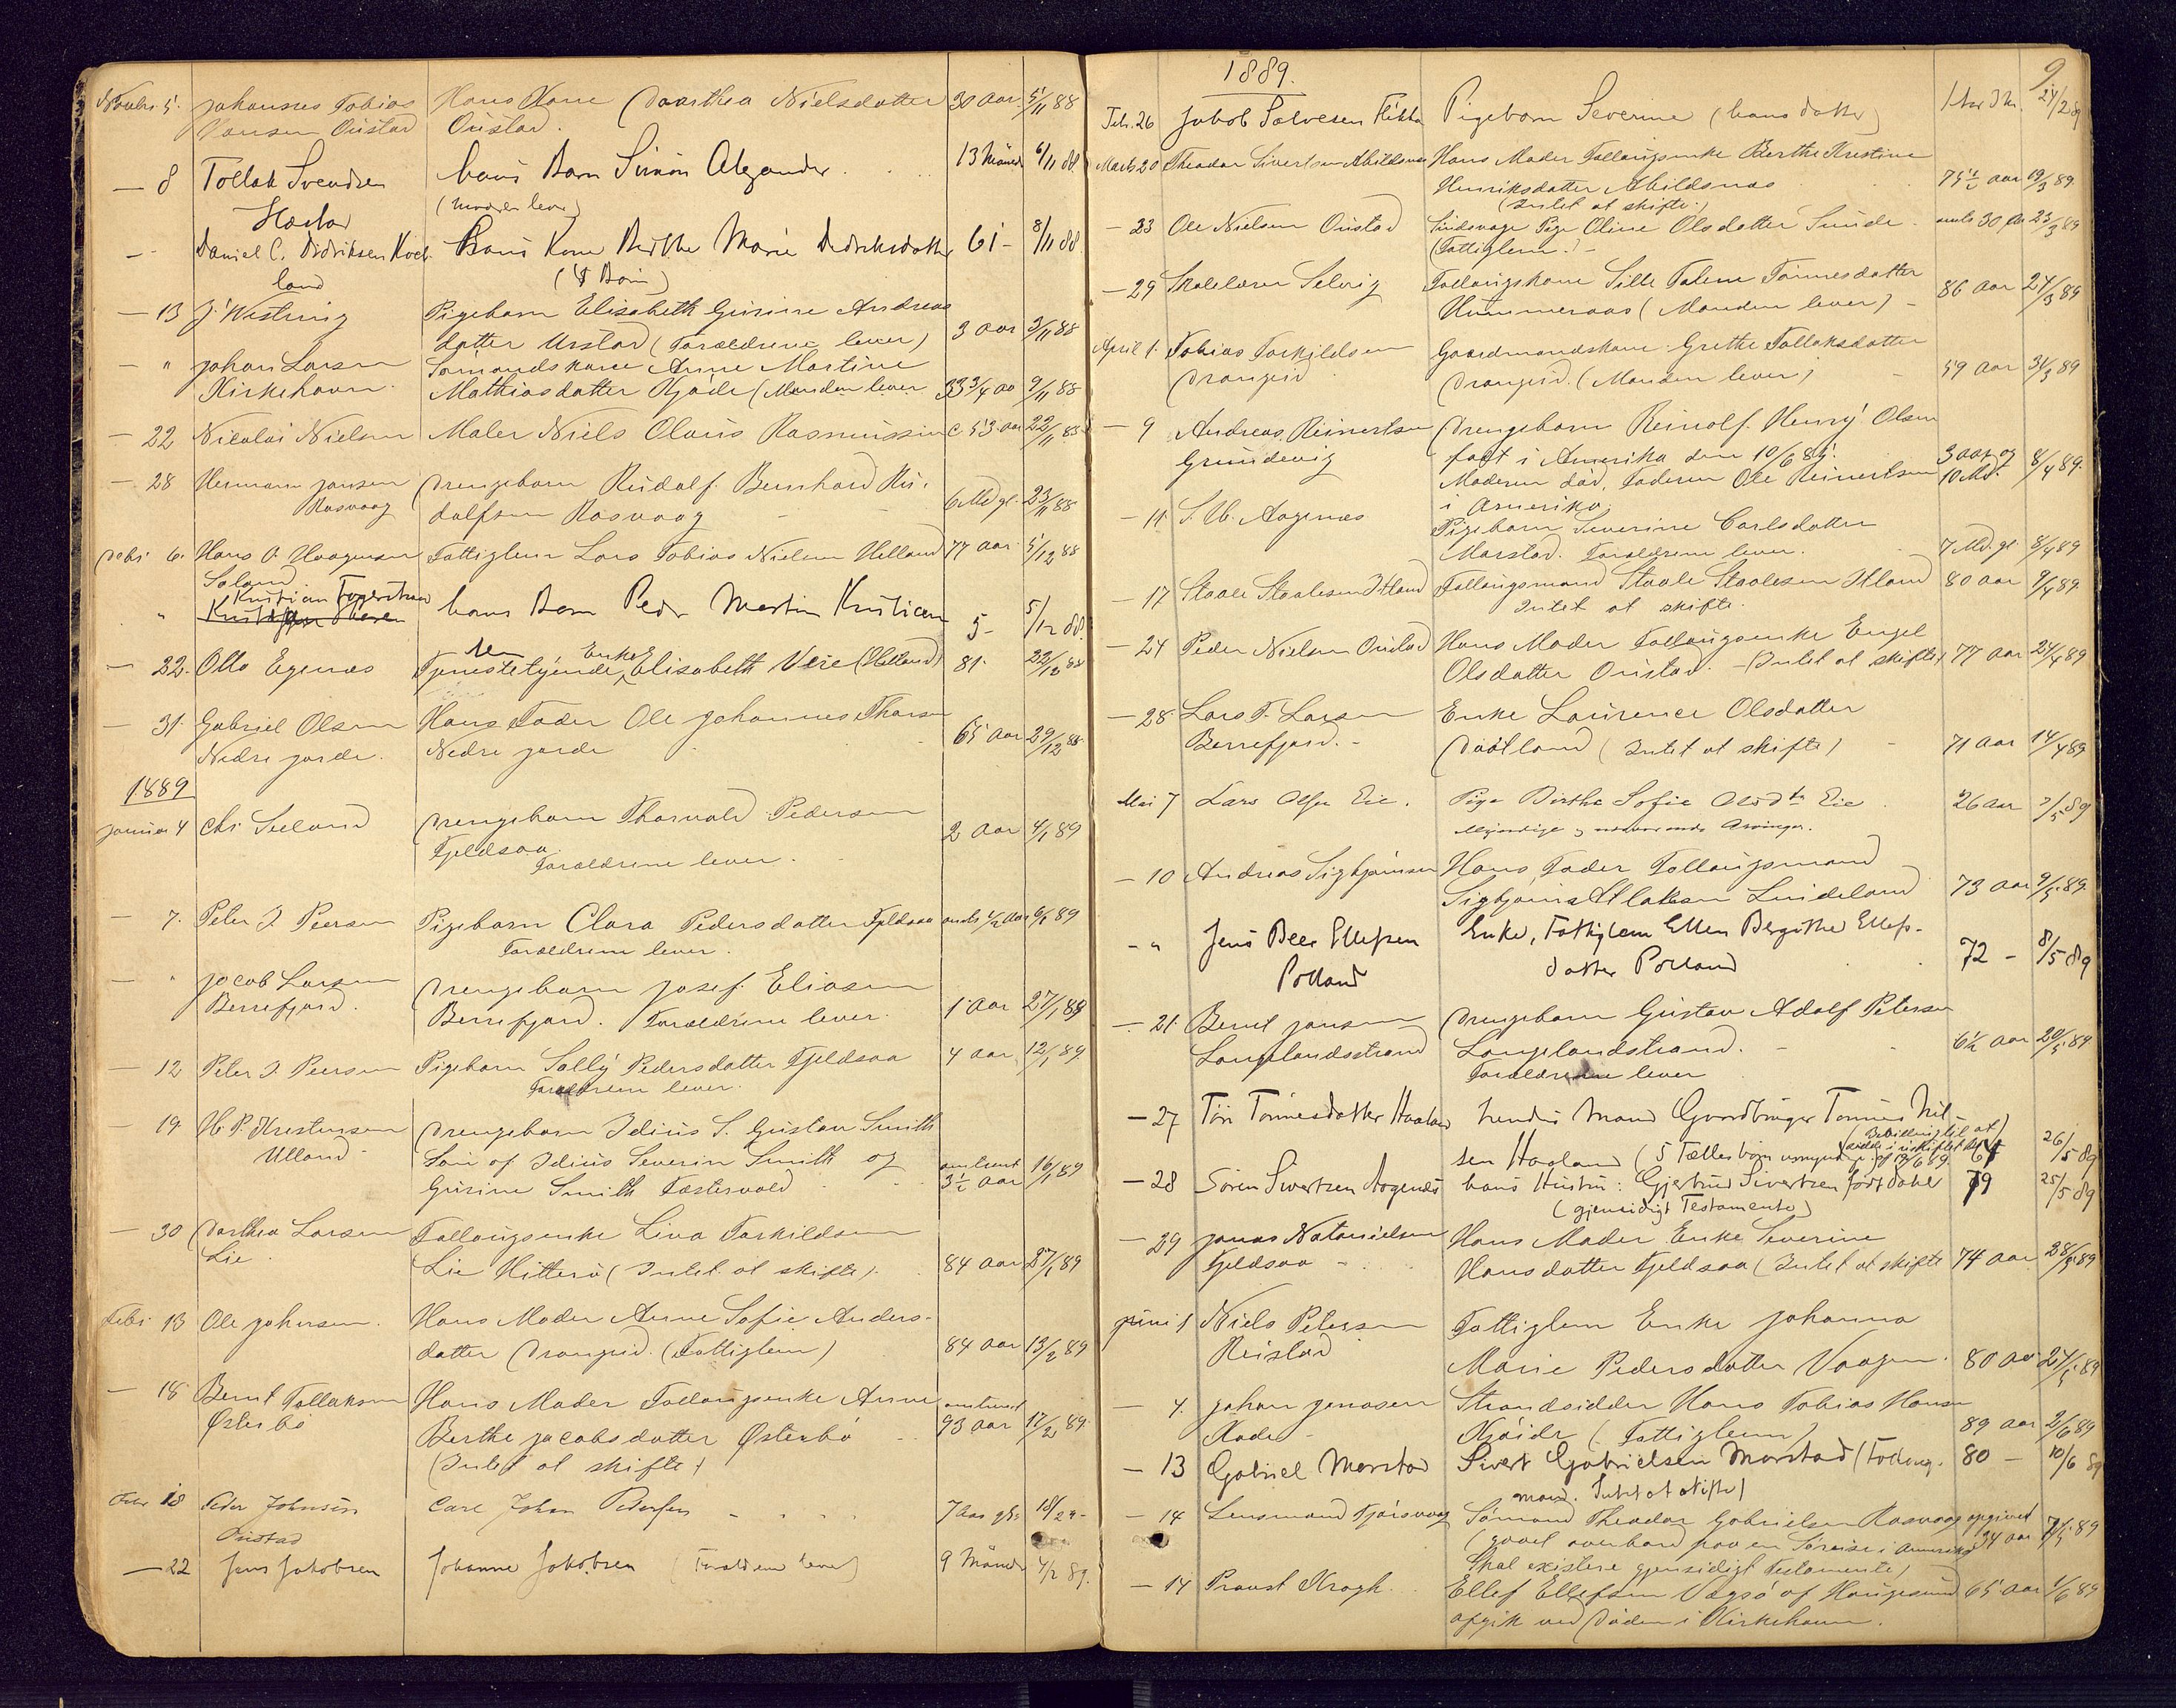 Novbr. 5. Johannes Tobias Hans Kone Dorthea Nielsdatter 30 Aar 5/11 88
Hansen Oustad Oustad.
— 8 Tollak Svendsen hans Barn Simon Alexander 13 Maaned 6/11 88.
(Moderen lever)
— Daniel C. Didriksen Hans Kone Berthe Marie Didriksdatter 61 - 8/11 88
land (4 Børn)
— 13 J. Westring Pigebarn Elisabeth Gurine Andreas
datter Urstad (Forældrene lever) 3 Aar 3/11 88
— " Johan Larsen Sømandskone Anne Martine
Kirkehavn. Mathiasdatter Kjøde (Manden lever 33 3/4 aa 9/11 88
— 22 Nicolai Nielsen Maler Niels Olaus Rasmussen c 53 aar 22/11 88
— 28 Hermann Jansen Drengebarn Rudolf Bernhard Ru-
Rasvaag dolfsen Rasvaag 6 Md gl. 23/11 88
Debr 6. Hans O Haagensen Fattiglem Lars Tobias Nielsen Helland 77 Aar 5/12 88
" Kristian hans Barn Peder Martin Kristian
sen 5 - 5/12 88.
— 22. Otto Egenæs Tjenestetyende, Enke Elisabeth Vere (Hetland) 81. 22/12 88
— 31. Gabriel Olsen Hans Fader Ole Johannes Thorsen
Nedre jorde. Nedre jorde 65 Aar 29/12 88
1889
Januar 4 Chr Seeland Drengebarn Thorvald Pedersen
Fjeldsaa. 2 Aar 4/1 89
Forældrene lever.
— 7. Peter J. Peersen Pigebarn Clara Pedersdatter Fjeldsaa 1/2 Aar 6/1 89
Forældrene lever.
— " Jacob Larsen Drengebarn Josef Eliasen
Berrefjord. Berrefjord. Forældrene lever. 1 Aar 27/1 88
— 12 Peter J. Peersen Pigebarn Sally Pedersdatter Fjeldsaa 4 Aar 12/1 89
Forældrene lever.
— 19 H. P. Drengebarn Idius S. Gustav Smith
Ulland Søn af Idius Severin Smith og omtrent
Gurine Smith 3 1/2 Aar 16/1 89
— 30 Dorthea Larsen Follaugsenke Lina Torkildsen
Lie. Lie Hitterø (Intet at skifte). 84 Aar 27/1 89
Febr. 13 Ole Johnsen. Hans Moder Anne Sofie Anders-
datter Drangeid. (Fattiglem) 84 Aar 13/2 89
— 18 Bernt Tollaksen Hans Moder Follaugsenke Anne omtrent
Østerbø Berthe Jacobsdatter Østerbø 93 Aar 17/2 89.
(Intet at skifte)
Febr 18 Peder Johnsen Carl Johan Pedersen 7 Aar 18/2 89
Oustad
— 22 Jens Jakobsen Johanne Jakobsen (Forældrene lever) 9 Maaned 4/2 89.
1889. 9.
Feb. 26 Jakob Salvesen Flikka Pigebarn Severine (hans datter) 1 Aar 3 M. 24/2 89
Marts 20 Theodor Sivertsen Abildsnæs Hans Moder Follaugsenke Berthe Kristine
Henriksdatter Abildsnæs 75 1/2 aar 19/3 89.
(Intet at skifte.)
— 23 Ole Nielsen Oustad Sindssvage Pige Oline Olsdatter Sunde 30 Aar 23/3 89
(Fattiglem.) -
— 29 Skolelærer Selvig Follaugskone Sille Malene Tønnesdatter
Hummeraas (Manden lever) - 86 aar 24/3 89
April 1. Tobias Torkildsen Gaardmandskone Grethe Tollaksdatter
Drangeid Drangeid. (Manden lever) 59 Aar 31/3 89
— 9 Andreas Reinertsen Drengebarn Reinolf Henry Olsen
Grundevig født i Amerika den 10/6 85. 3 aar og
Moderen død. Faderen Ole Reinertsen 10 Md. 8/4 89.
i Amerika.
— 11 S. Aagenæs Pigebarn Severine Carlsdatter
Marstad. Forældrene lever. 7 Md. gl. 8/4 89
— 17 Staale Staalesen Itland Follaugsmand Staale Staalesen Itland 80 aar 9/4 89.
Intet at skifte.
— 24 Peder Nielsen Oustad Hans Moder Follaugsenke Engel
Olsdatter Oustad. - (Intet at skifte) 77 aar 24/4 89
— 28 Lars T. Larsen Enke Laurence Olsdatter
Berrefjord. - Daatland (Intet at skifte) - 71 aar 14/4 89
Mai 7 Lars Olsen Eie. Pige Birthe Sofie Olsdtr Eie 26 aar 7/5 89
Myndige og nærværende Arvinger.
— 10 Andreas Sigbjørnsen Hans Fader Follaugsmand
Sigbjørn Atlaksen Lindeland 73 aar 9/5 89.
- " Jens Beer Ellefsen Enke, Fattiglem Ellen Bergithe Ellefs-
Polland datter Polland 72 - 8/5 89
— 21. Bernt Jansen Drengebarn Gustav Adolf Petersen
Langelandsstrand Langelandstrand. 6 1/2 aar 20/5 89
Forældrene lever
— 27 Tøri Tønnesdatter Haaland hendes Mand Gaardbruger Tønnes Nil-
sen Haaland (5 Fællesbørn 64 26/5 89
— 28 Søren Sivertsen Aagenæs hans Hustru: Gjertrud Sivertsen født Dahl 79 25/5 89
(gjensidigt Testamente)
— 29 Jonas Natanielsen Hans Moder Enke Severine
Fjeldsaa - Hansdatter Fjeldsaa (Intet at skifte 74 aar 28/5 89
Juni 1 Niels Petersen Fattiglem Enke Johanna
Reistad Marie Pedersdatter Vaagen. 80 Aar 27/5 89
— 4. Johan Jenasen Strandsidder Hans Tobias Hansen
Kade - (Fattiglem) 89 aar 2/6 89
— 13 Gabriel Marstad Sivert Gabrielsen Marstad (Follaug. 80 - 10/6 89
mand. Intet at skifte)
— 14 Lensmand Fjørsvaag Sømand Theodor Gabrielsen Rasvaag opgivet
(gaaet overbord paa en Søreise i Amerika 34 aar 7/5 89
Skal existere gjensidigt Testamente)
— 14 Provst Krogh. Ellef Ellefsen Vaagsø af Haugesund 65 Aar 1/6 89
afgik ved Døden i Kirkehavn.